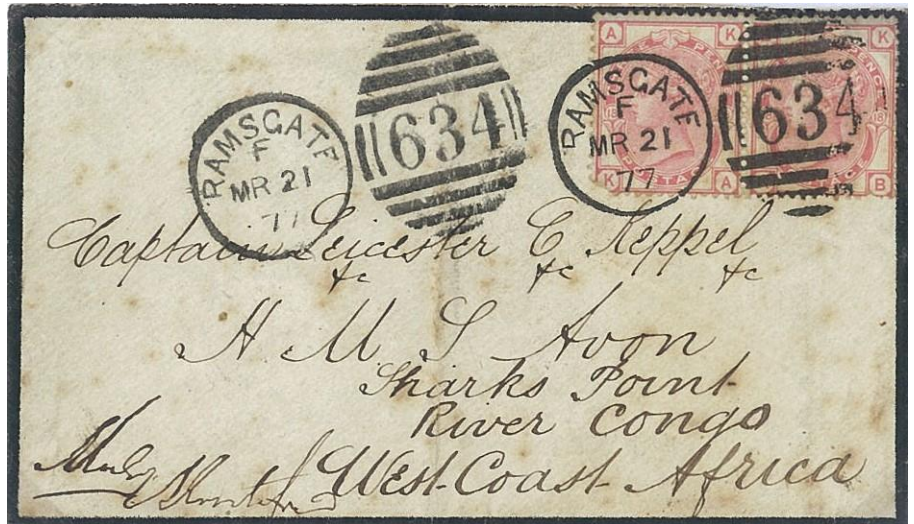 A K K
PENCE
K A B
RAMSGATE
F
MR 21
77
634
RAMSGATE
F
MR 21
77
634
Captain Leicester C Keppel
&c &c &c
H M S Avon
Sharks Point
River Congo
West Coast Africa